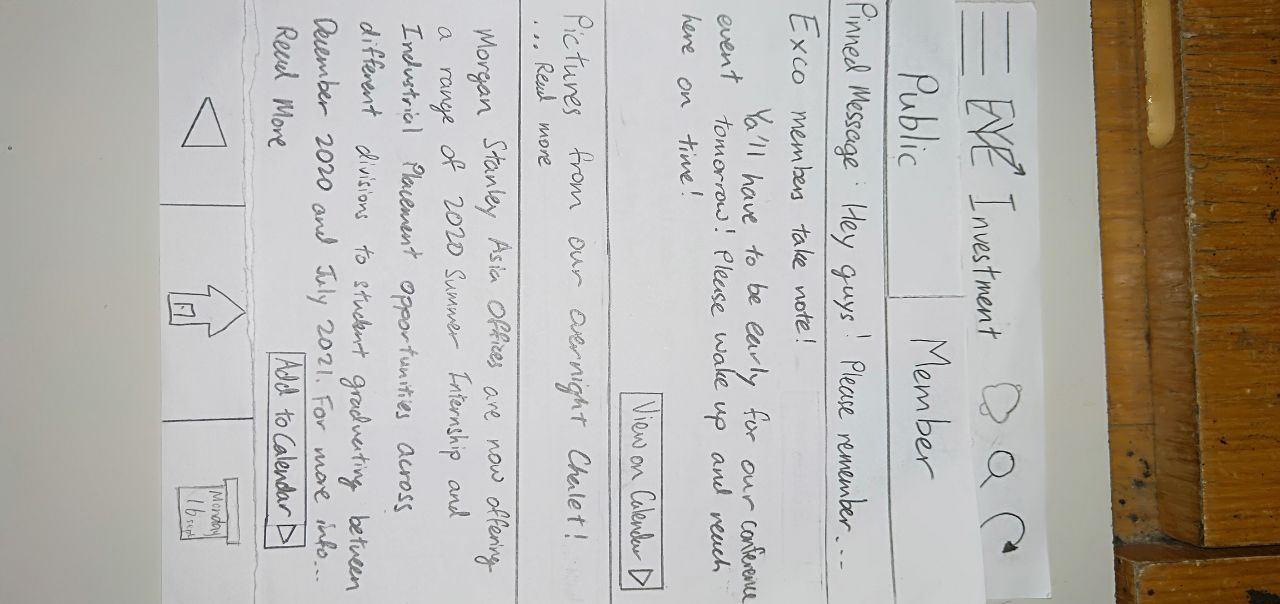 EYE Investment
Public
Member
Pinned Message: Hey guys! Please remember...
Exco members take note!
Ya'll have to be early for our conference
event tomorrow! Please wake up and reach
here on time!
View on Calendar
Pictures from our overnight Chalet!
... Read more
Morgan Stanley Asia Offices are now offering
a range of 2020 Summer Internship and
Industrial Placement opportunities across
different divisions to student graduating between
December 2020 and July 2021. For more info...
Read More
Add to Calendar
Monday
16 sept